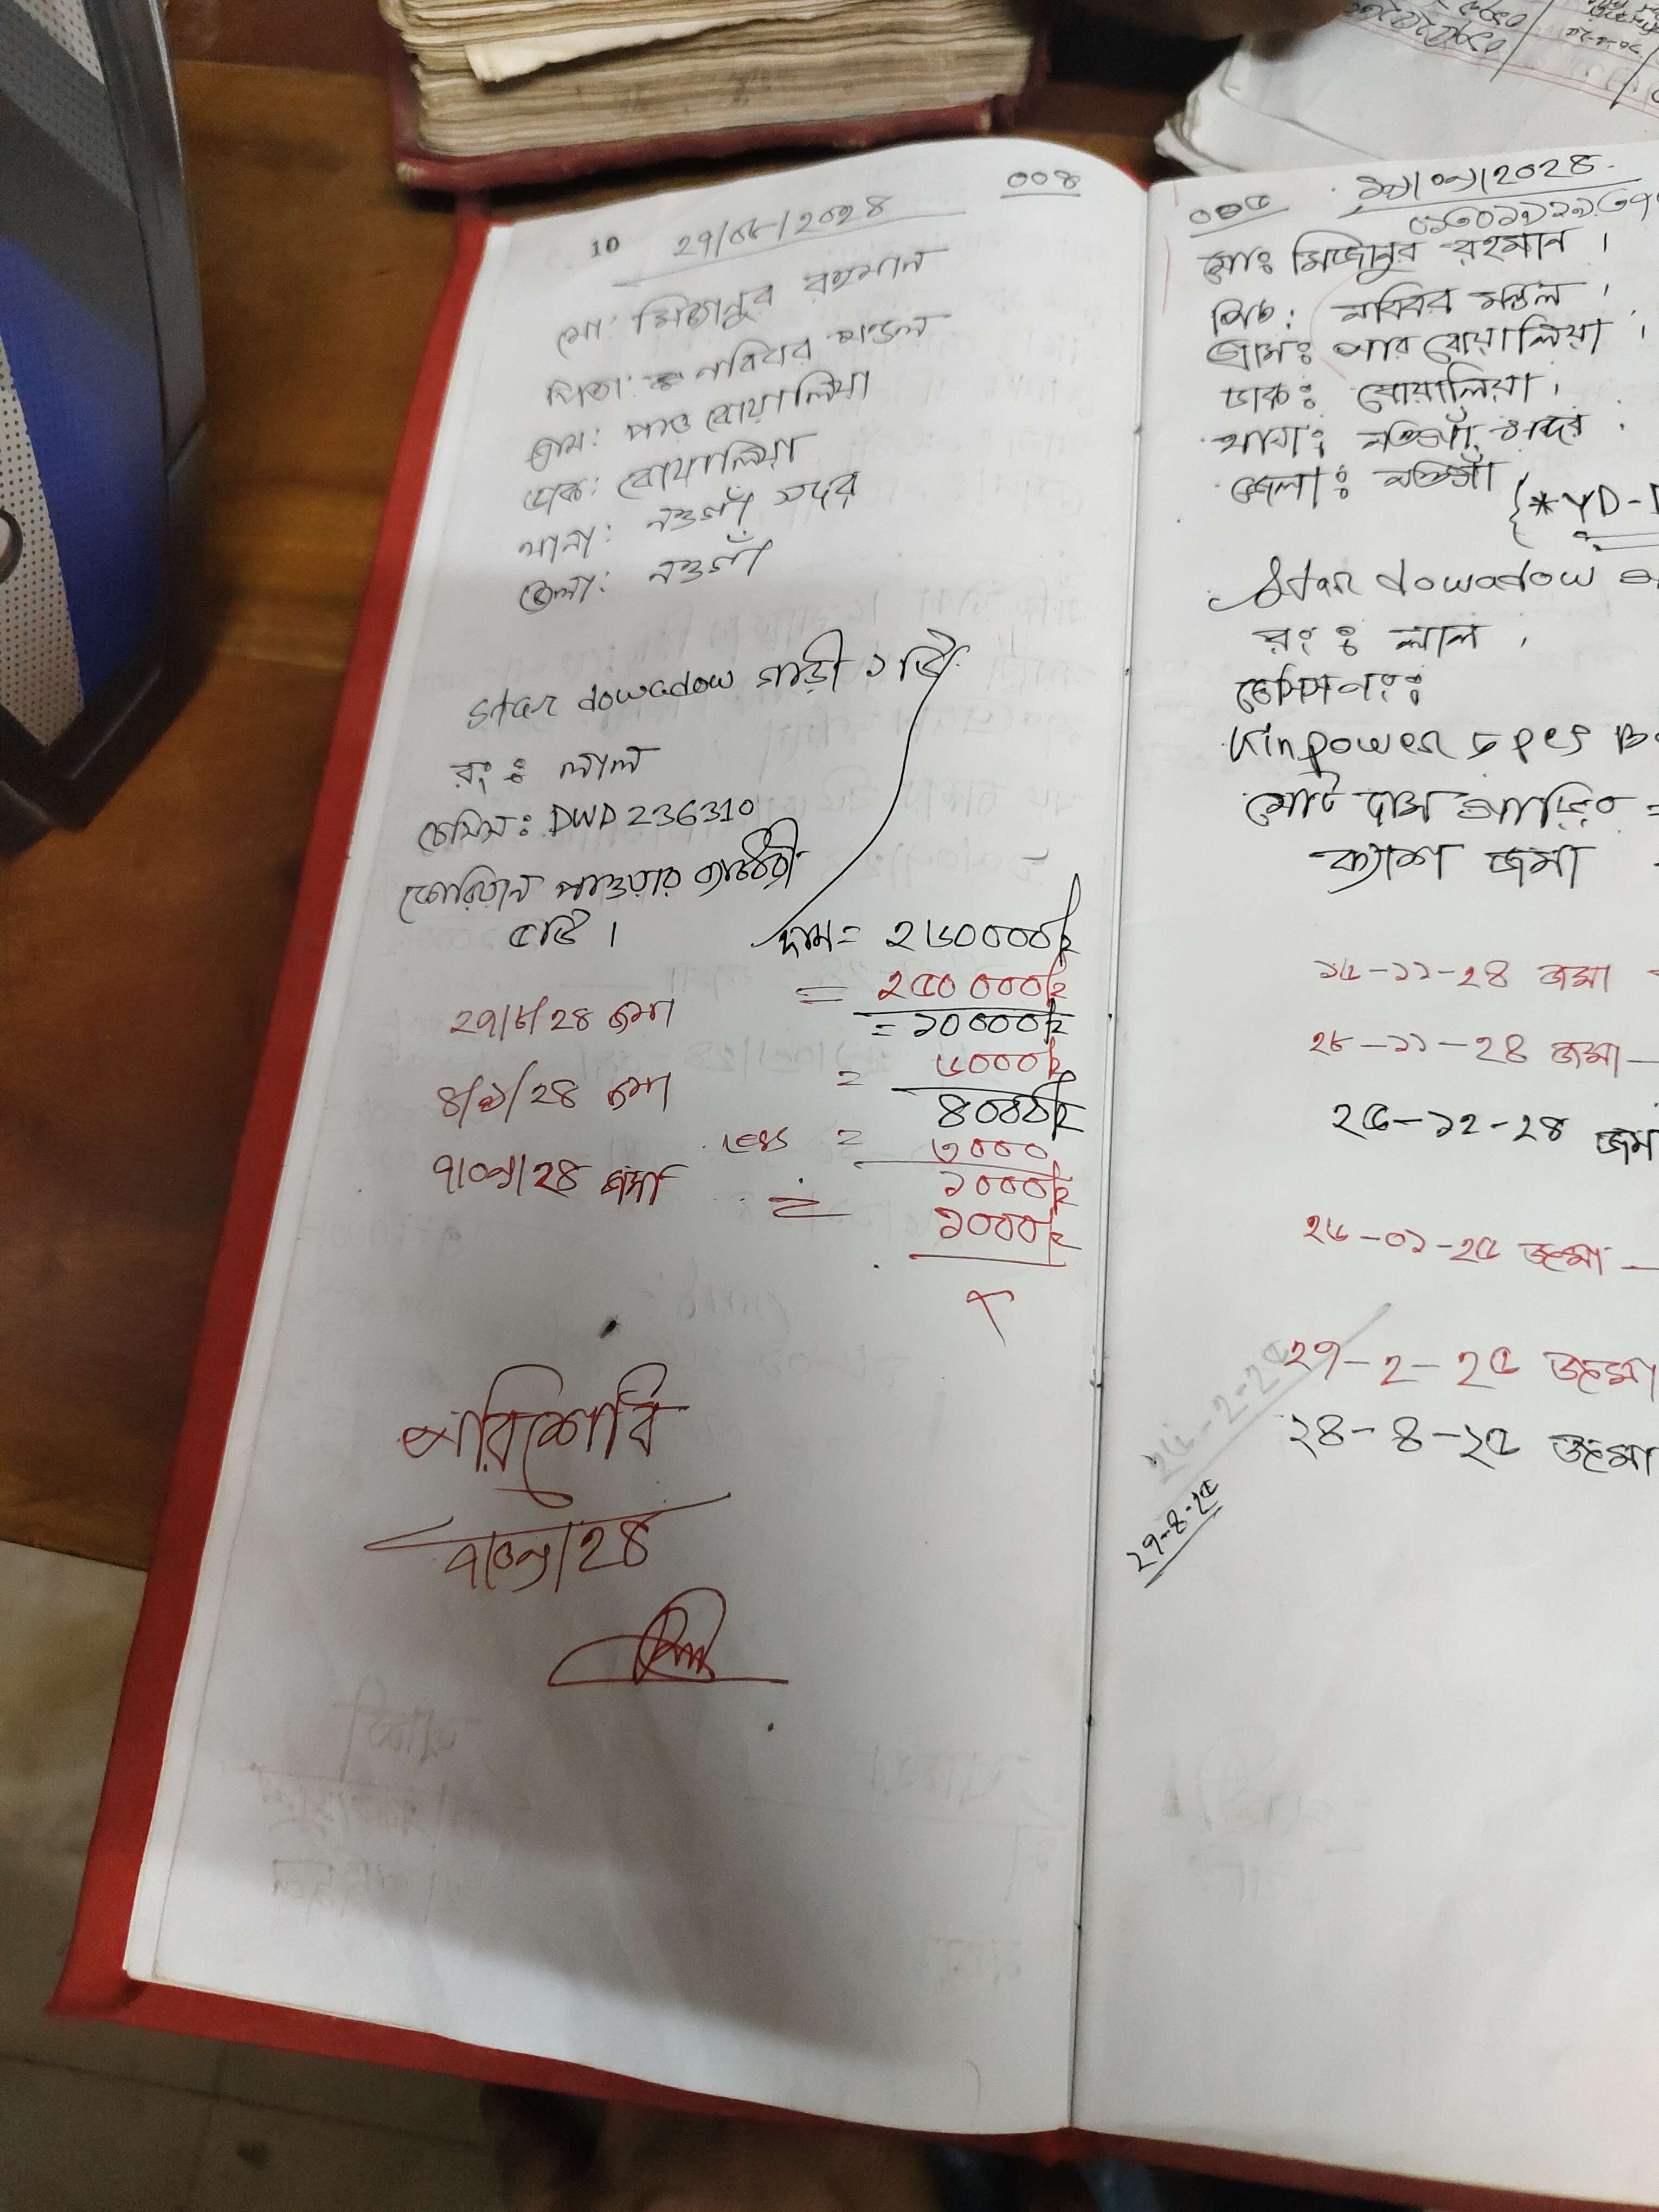 10
২৭/০৮/২০২৪
০০৪
মো: মিজানুর রহমান
পিতা: নবিবর মন্ডল
গ্রাম: পার বোয়ালিয়া
ডাক: বোয়ালিয়া
থানা: নওগাঁ সদর
জেলা: নওগাঁ
Star dowadow গাড়ী ১টি
রং ঃ লাল
চেসিস ঃ DWD 236310
ব্যাটারী
৫টি।
দাম = ২৬০০০০/=
২৭/৮/২৪ জমা = ২৫০০০০/=
= ১০০০০/=
৪/৯/২৪ জমা = ৬০০০/=
৪০০০/=
Less = ৩০০০
১০০০/=
৭/০৯/২৪ জমা = ১০০০/=
×
পরিশোধ
৭/০৯/২৪
০০৫
মোঃ মিজানুর রহমান।
পিতা: নবিবর মন্ডল।
গ্রামঃ পার বোয়ালিয়া।
ডাকঃ বোয়ালিয়া।
থানাঃ নওগাঁ সদর
জেলাঃ নওগাঁ
{*YD-
Star dowadow
রং ঃ লাল,
চেসিস নংঃ
Kinpower 5 pes
মোট দাম গাড়ির =
ক্যাশ জমা
১৫-১১-২৪ জমা
২৮-১১-২৪ জমা—
২৫-১২-২৪ জমা
২৬-০১-২৫ জমা—
২৬-২-২৫
২৭-২-২৫ জমা
২৪-৪-২৫ জমা
২৭-৪-২৫